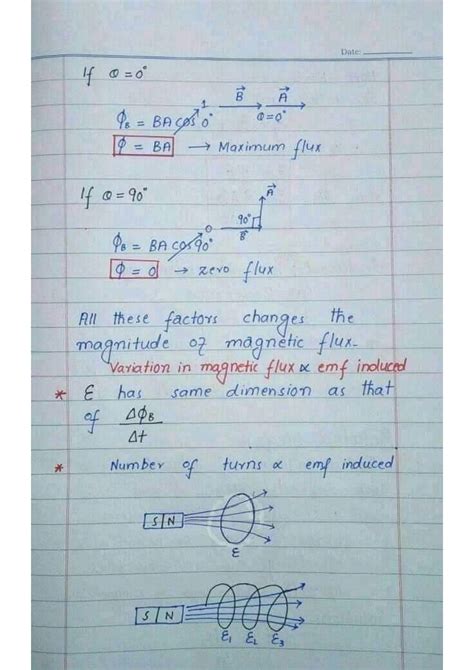 Date:
If θ = 0°
B⃗ A⃗
1
ϕB = BA cos 0° θ=0°
ϕ = BA → Maximum flux
If θ = 90°
A⃗
0 90°
ϕB = BA cos 90° B⃗
ϕ = 0 → zero flux
All these factors changes the
magnitude of magnetic flux.
Variation in magnetic flux ∝ emf induced
* ε has same dimension as that
of ΔϕB
Δt
* Number of turns ∝ emf induced
S N
ε
S N
ε1 ε2 ε3